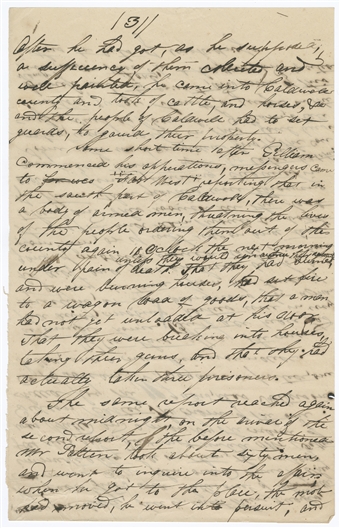 (3)
After he had got, as he supposed,
a sufficiency of them collected, and
well painted, he came into Caldwell
county and took of cattle and horses, &c
and the people of Caldwell had to set
guards, to guard their property.
Some short time after Gillam
commenced his opperations, messingers came
to Far West reporting that in
the south part of Caldwell there was
a body of armed men, threatning the lives
of the people ordering them out of the
county again 10 oclock the next morning
under pain of death That they had burned
and were burning houses, had set fire
to a wagon load of goods, that a man
had not yet unloaded at his door
That they were breaking into houses,
taking their guns, and that they had
actually taken three prisoners.
The same report reached again
about midnight, on the arival of the
second report, the before mentioned
Mr Patten took about sixty men
and went to inquire into the affair
when he got to the place, the mob
had moved, he went into persuit, and